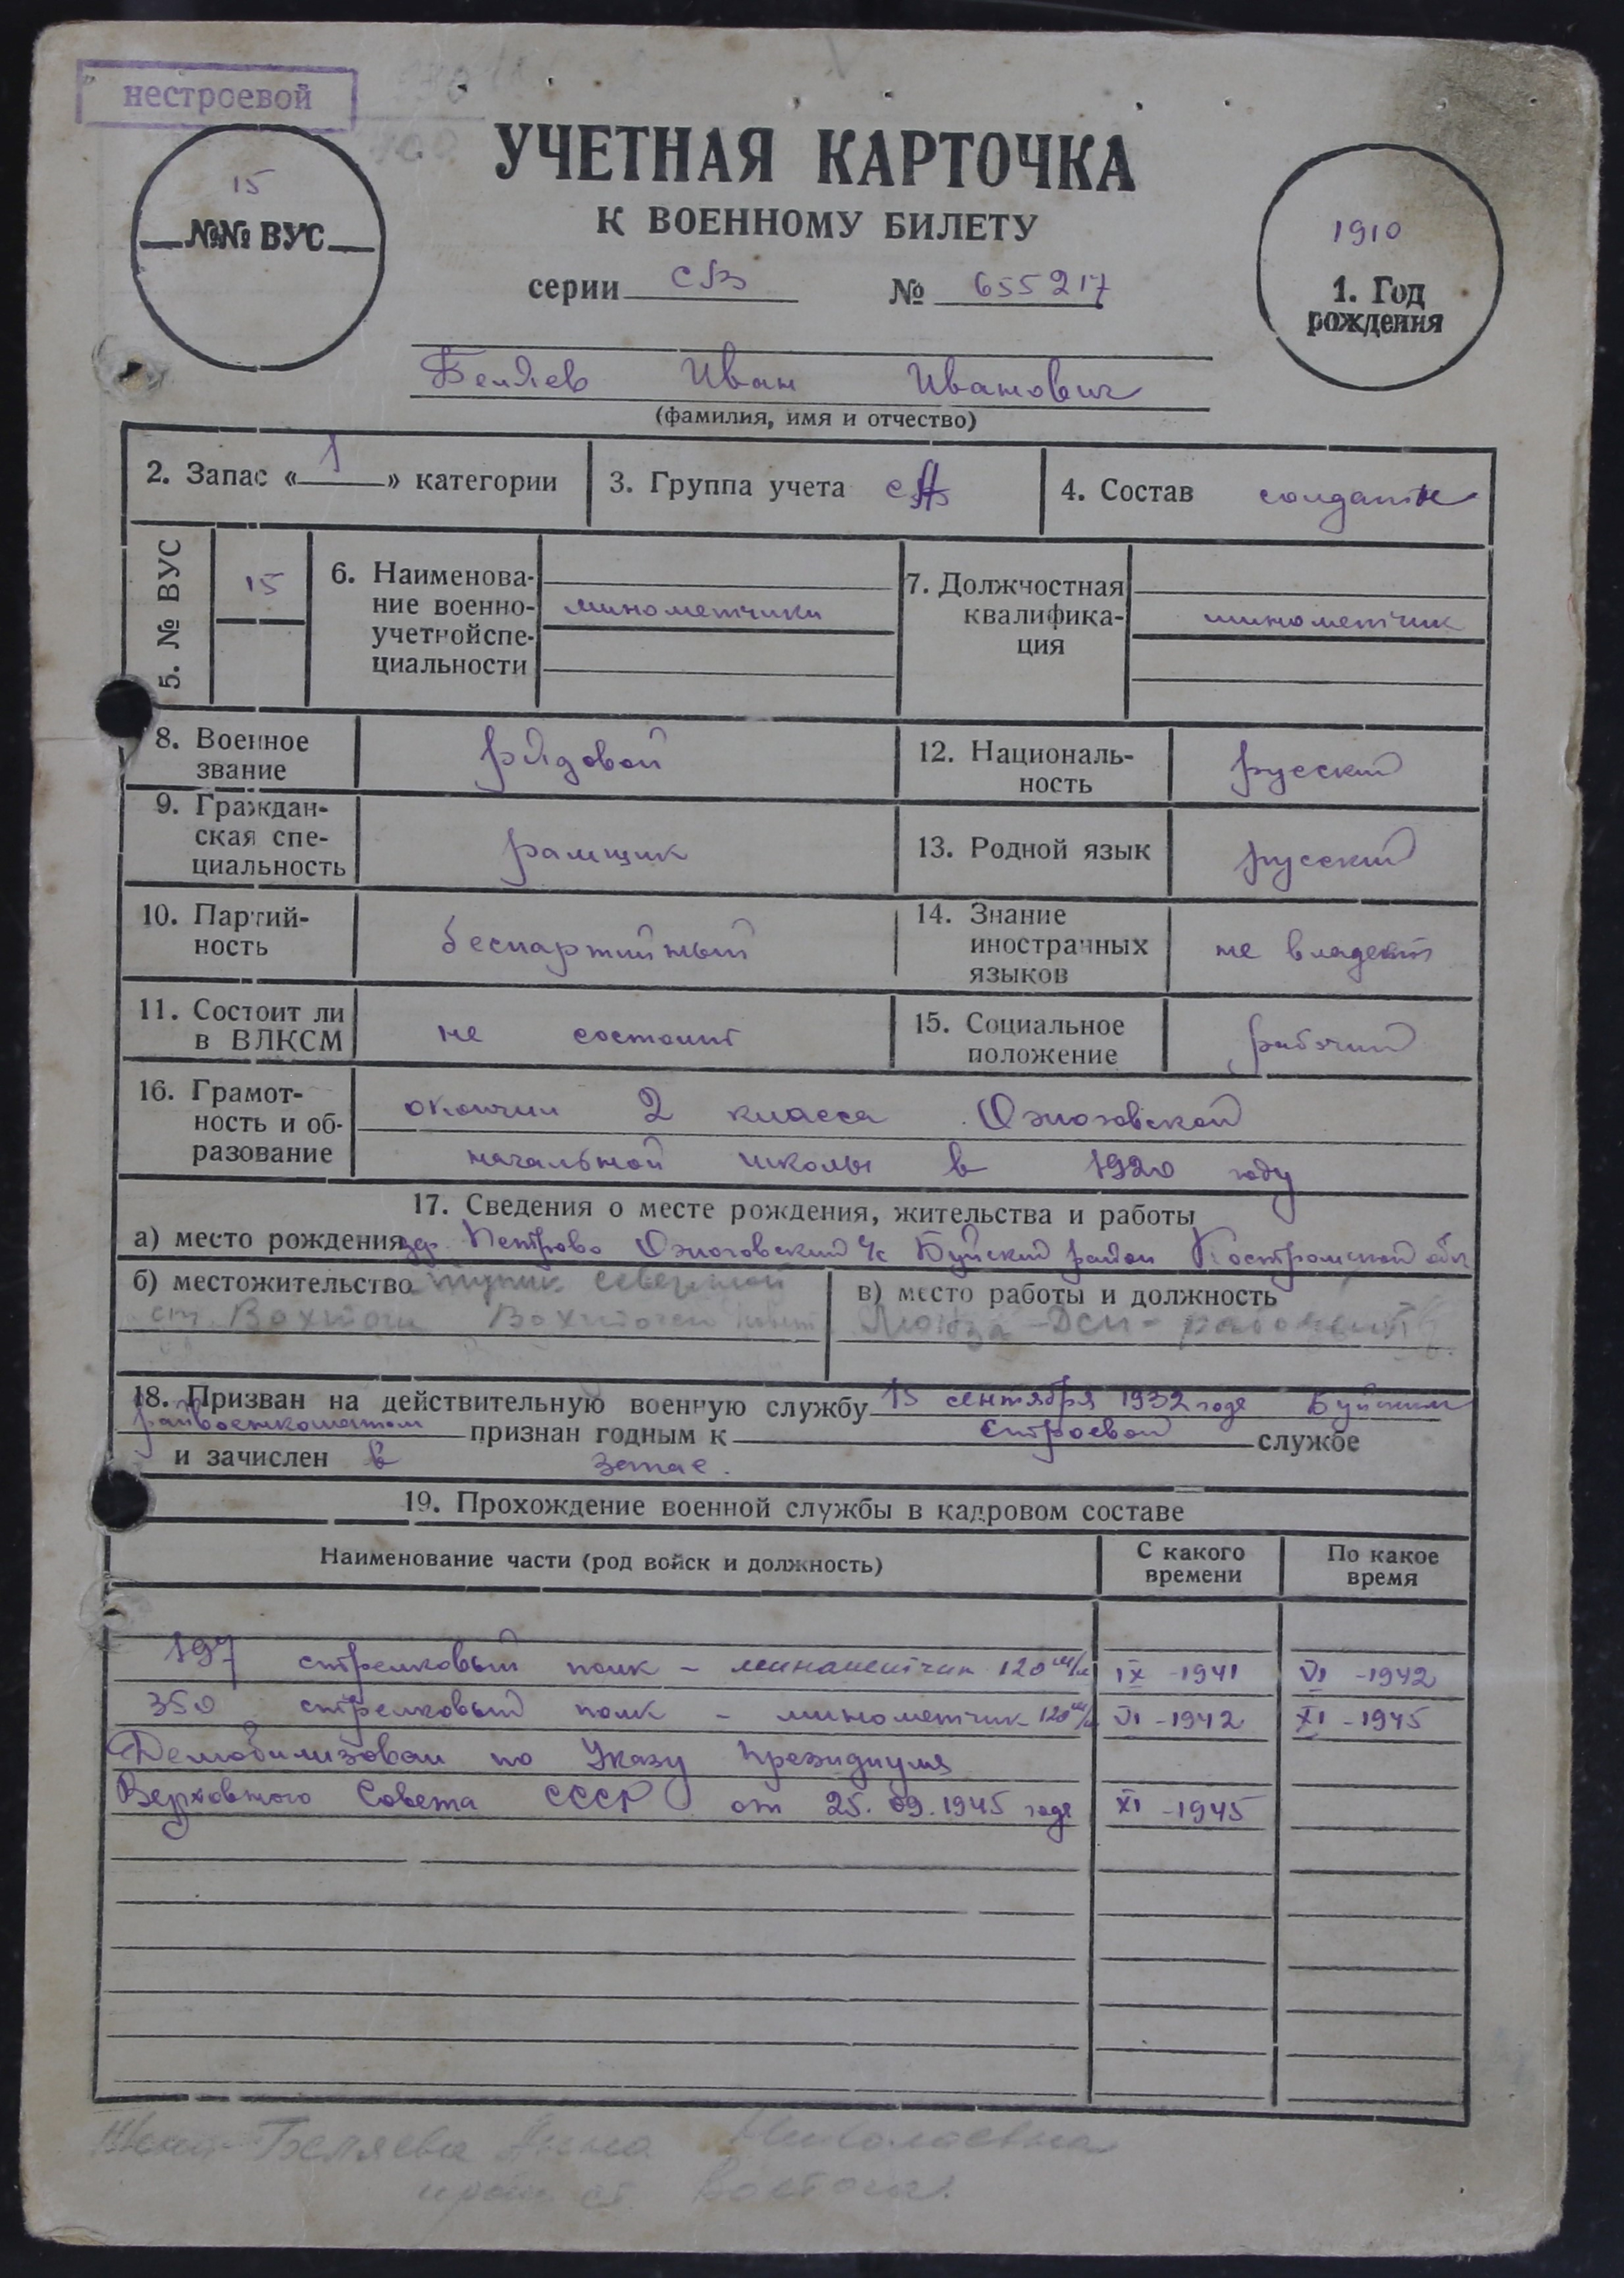 нестроевой
УЧЕТНАЯ КАРТОЧКА
К ВОЕННОМУ БИЛЕТУ
15
№№ ВУС
1910
1. Год
рождения
серии СВ № 655217
Беляев Иван Иванович
(фамилия, имя и отчество)
2. Запас «1» категории
3. Группа учета СА
4. Состав солдаты
5. № ВУС
15
6. Наименова-
ние военно-
учетной спе-
циальности
минометчики
7. Должностная
квалифика-
ция
минометчик
8. Военное
звание
рядовой
12. Националь-
ность
русский
9. Граждан-
ская спе-
циальность
рамщик
13. Родной язык
русский
10. Партий-
ность
беспартийный
14. Знание
иностранных
языков
не владеет
11. Состоит ли
в ВЛКСМ
не состоит
15. Социальное
положение
рабочий
16. Грамот-
ность и об-
разование
окончил 2 класса
начальной школы в 1920 году
17. Сведения о месте рождения, жительства и работы
а) место рождения д. Петрово с/с Буйский район Костромской обл
б) местожительство
ст. Вохтога
в) место работы и должность
18. Призван на действительную военную службу 15 сентября 1932 года Буйским
райвоенкоматом признан годным к строевой службе
и зачислен в
19. Прохождение военной службы в кадровом составе
Наименование части (род войск и должность)
С какого
времени
По какое
время
197 стрелковый полк - минометчик 120 м/м IX - 1941 VI - 1942
350 стрелковый полк - минометчик 120 м/м VI - 1942 XI - 1945
Демобилизован по Указу Президиума
Верховного Совета СССР от 25.09.1945 года XI - 1945
Жена Беляева Анна Николаевна